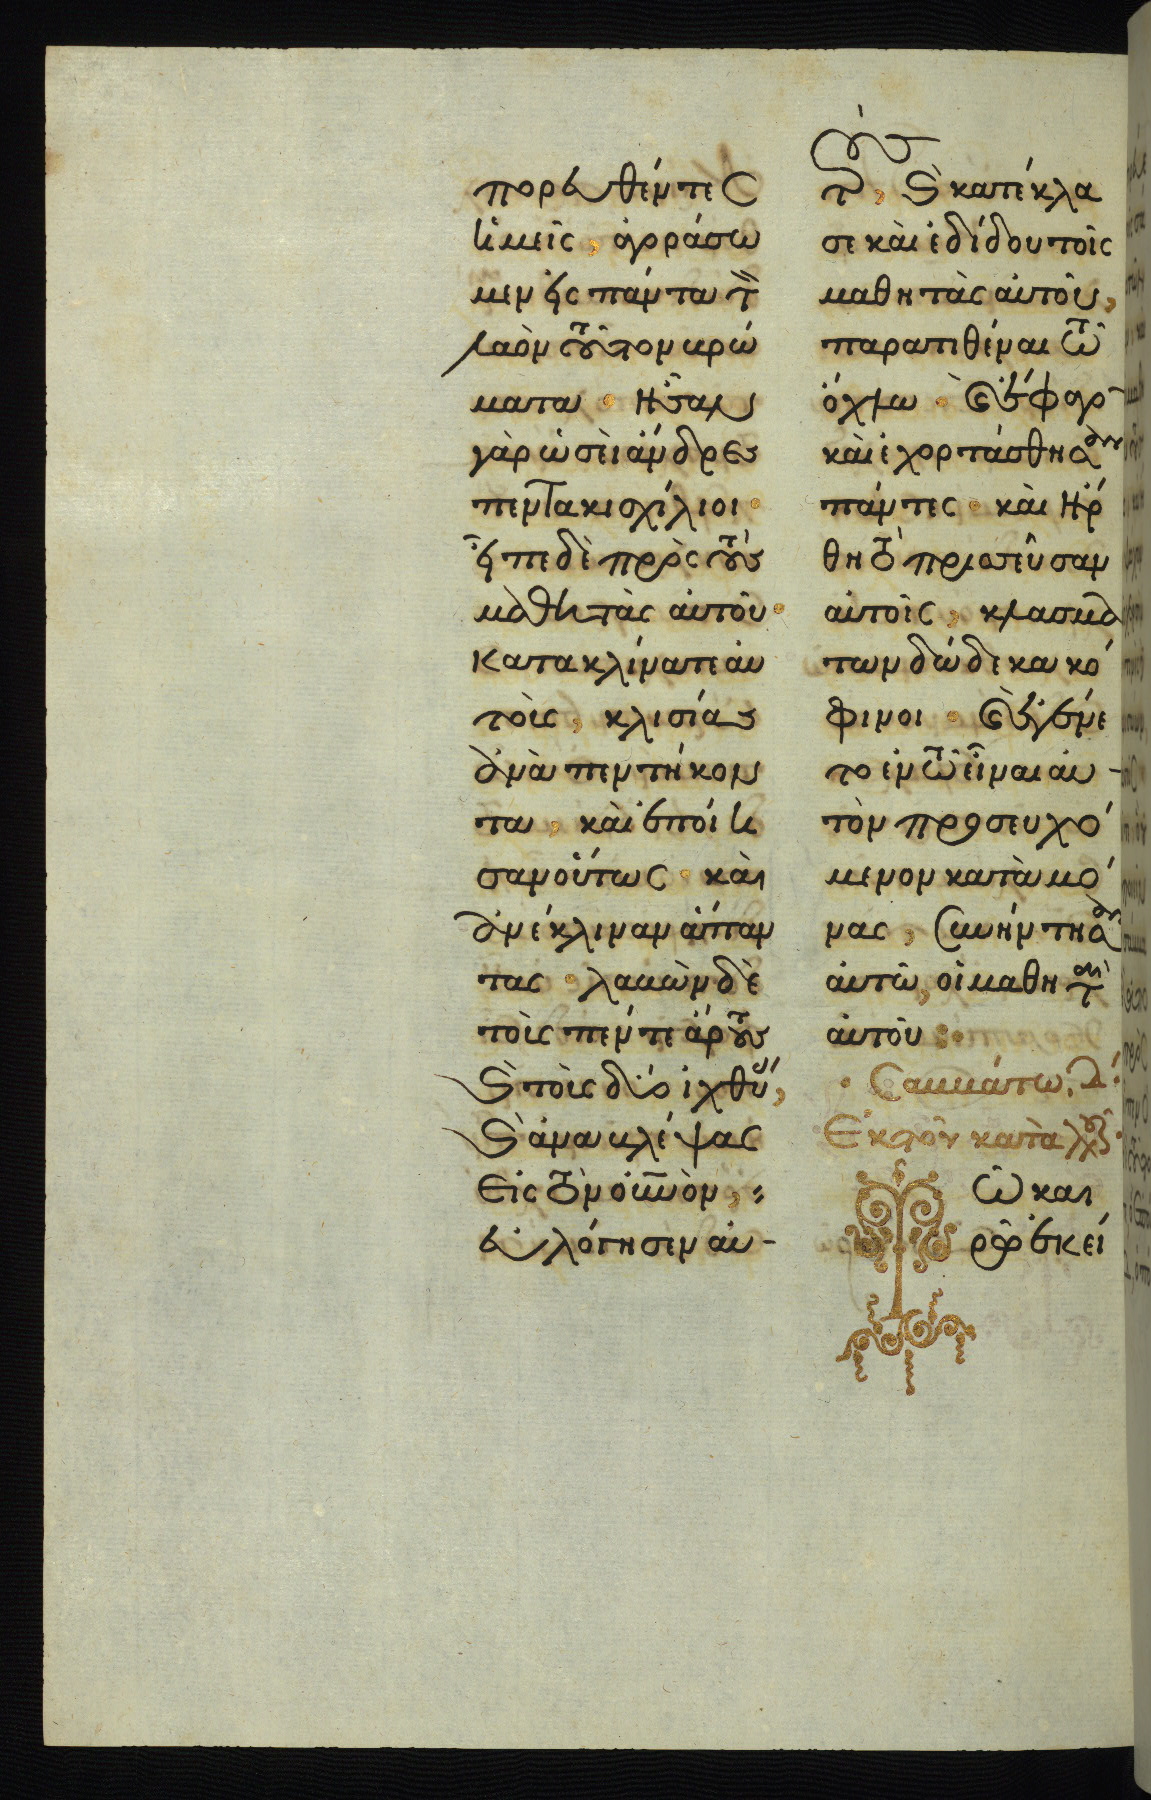 πορευθέντες
ἡμεῖς, ἀγοράσω
μεν εἰς πάντα τὸν
λαὸν τοῦτον βρώ
ματα · ἦσαν
γὰρ ὡσεὶ ἄνδρες
πεντακισχίλιοι ·
εἶπε δὲ πρὸς τοὺς
μαθητὰς αὐτοῦ ·
κατακλίνατε αὐ
τοὺς, κλισίας
ἀνὰ πεντήκον
τα, καὶ ἐποίη
σαν οὕτως · καὶ
ἀνέκλιναν ἅπαν
τας · λαβὼν δὲ
τοὺς πέντε ἄρτους
καὶ τοὺς δύο ἰχθύας,
καὶ ἀναβλέψας
εἰς τὸν οὐνὸν,
εὐλόγησεν αὐ-
τοὺς, καὶ κατέκλα
σε καὶ ἐδίδου τοῖς
μαθητὰς αὐτοῦ,
παρατιθέναι τῶ
ὄχλω · καὶ ἔφαγον
καὶ ἐχορτάσθησαν
πάντες · καὶ ἤρ
θη τὸ περισσεῦσαν
αὐτοῖς, κλασμά
των δώδεκα κό
φινοι · καὶ ἐγένε
το ἐν τῶ εἶναι αὐ-
τὸν προσευχό
μενον κατὰ μό
νας, συνήντησαν
αὐτῶ, οἱ μαθηταὶ
αὐτοῦ :·
· Σαββάτω, δ΄ :
Ἐκ τοῦ κατὰ λουκᾶν ·
Τῶ και
ρῶ ἐκεί